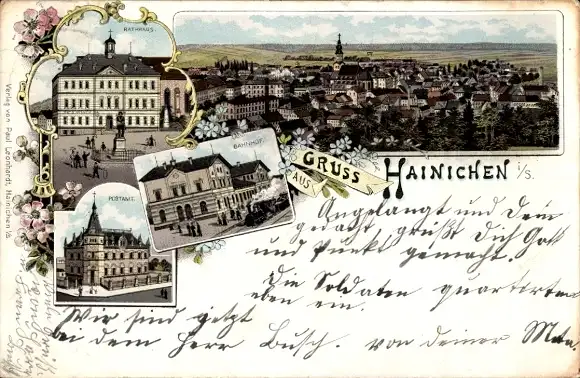 RATHHAUS.
BAHNHOF.
POSTAMT.
GRUSS
AUS
HAINICHEN i/S.
Verlag von Paul Leonhardt, Hainichen i/S.
Angelangt und Dein
gedacht, grüßt Dich Gott
und Punkt gemacht.
Die Soldaten quartirten
eben ein.
Wir sind jetzt
bei dem Herr Busch. von Deiner